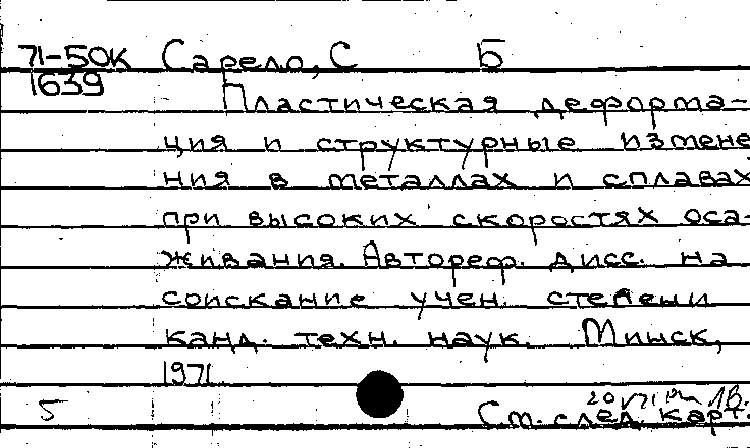 71-50К Сарело, С Б
1639
Пластическая деформа-
ция и структурные измене
ния в металлах и сплавах
при высоких скоростях оса-
живания. Автореф. дисс. на
соискание учен. степени
канд. техн. наук. Минск,
1971
5 См. след. карт.